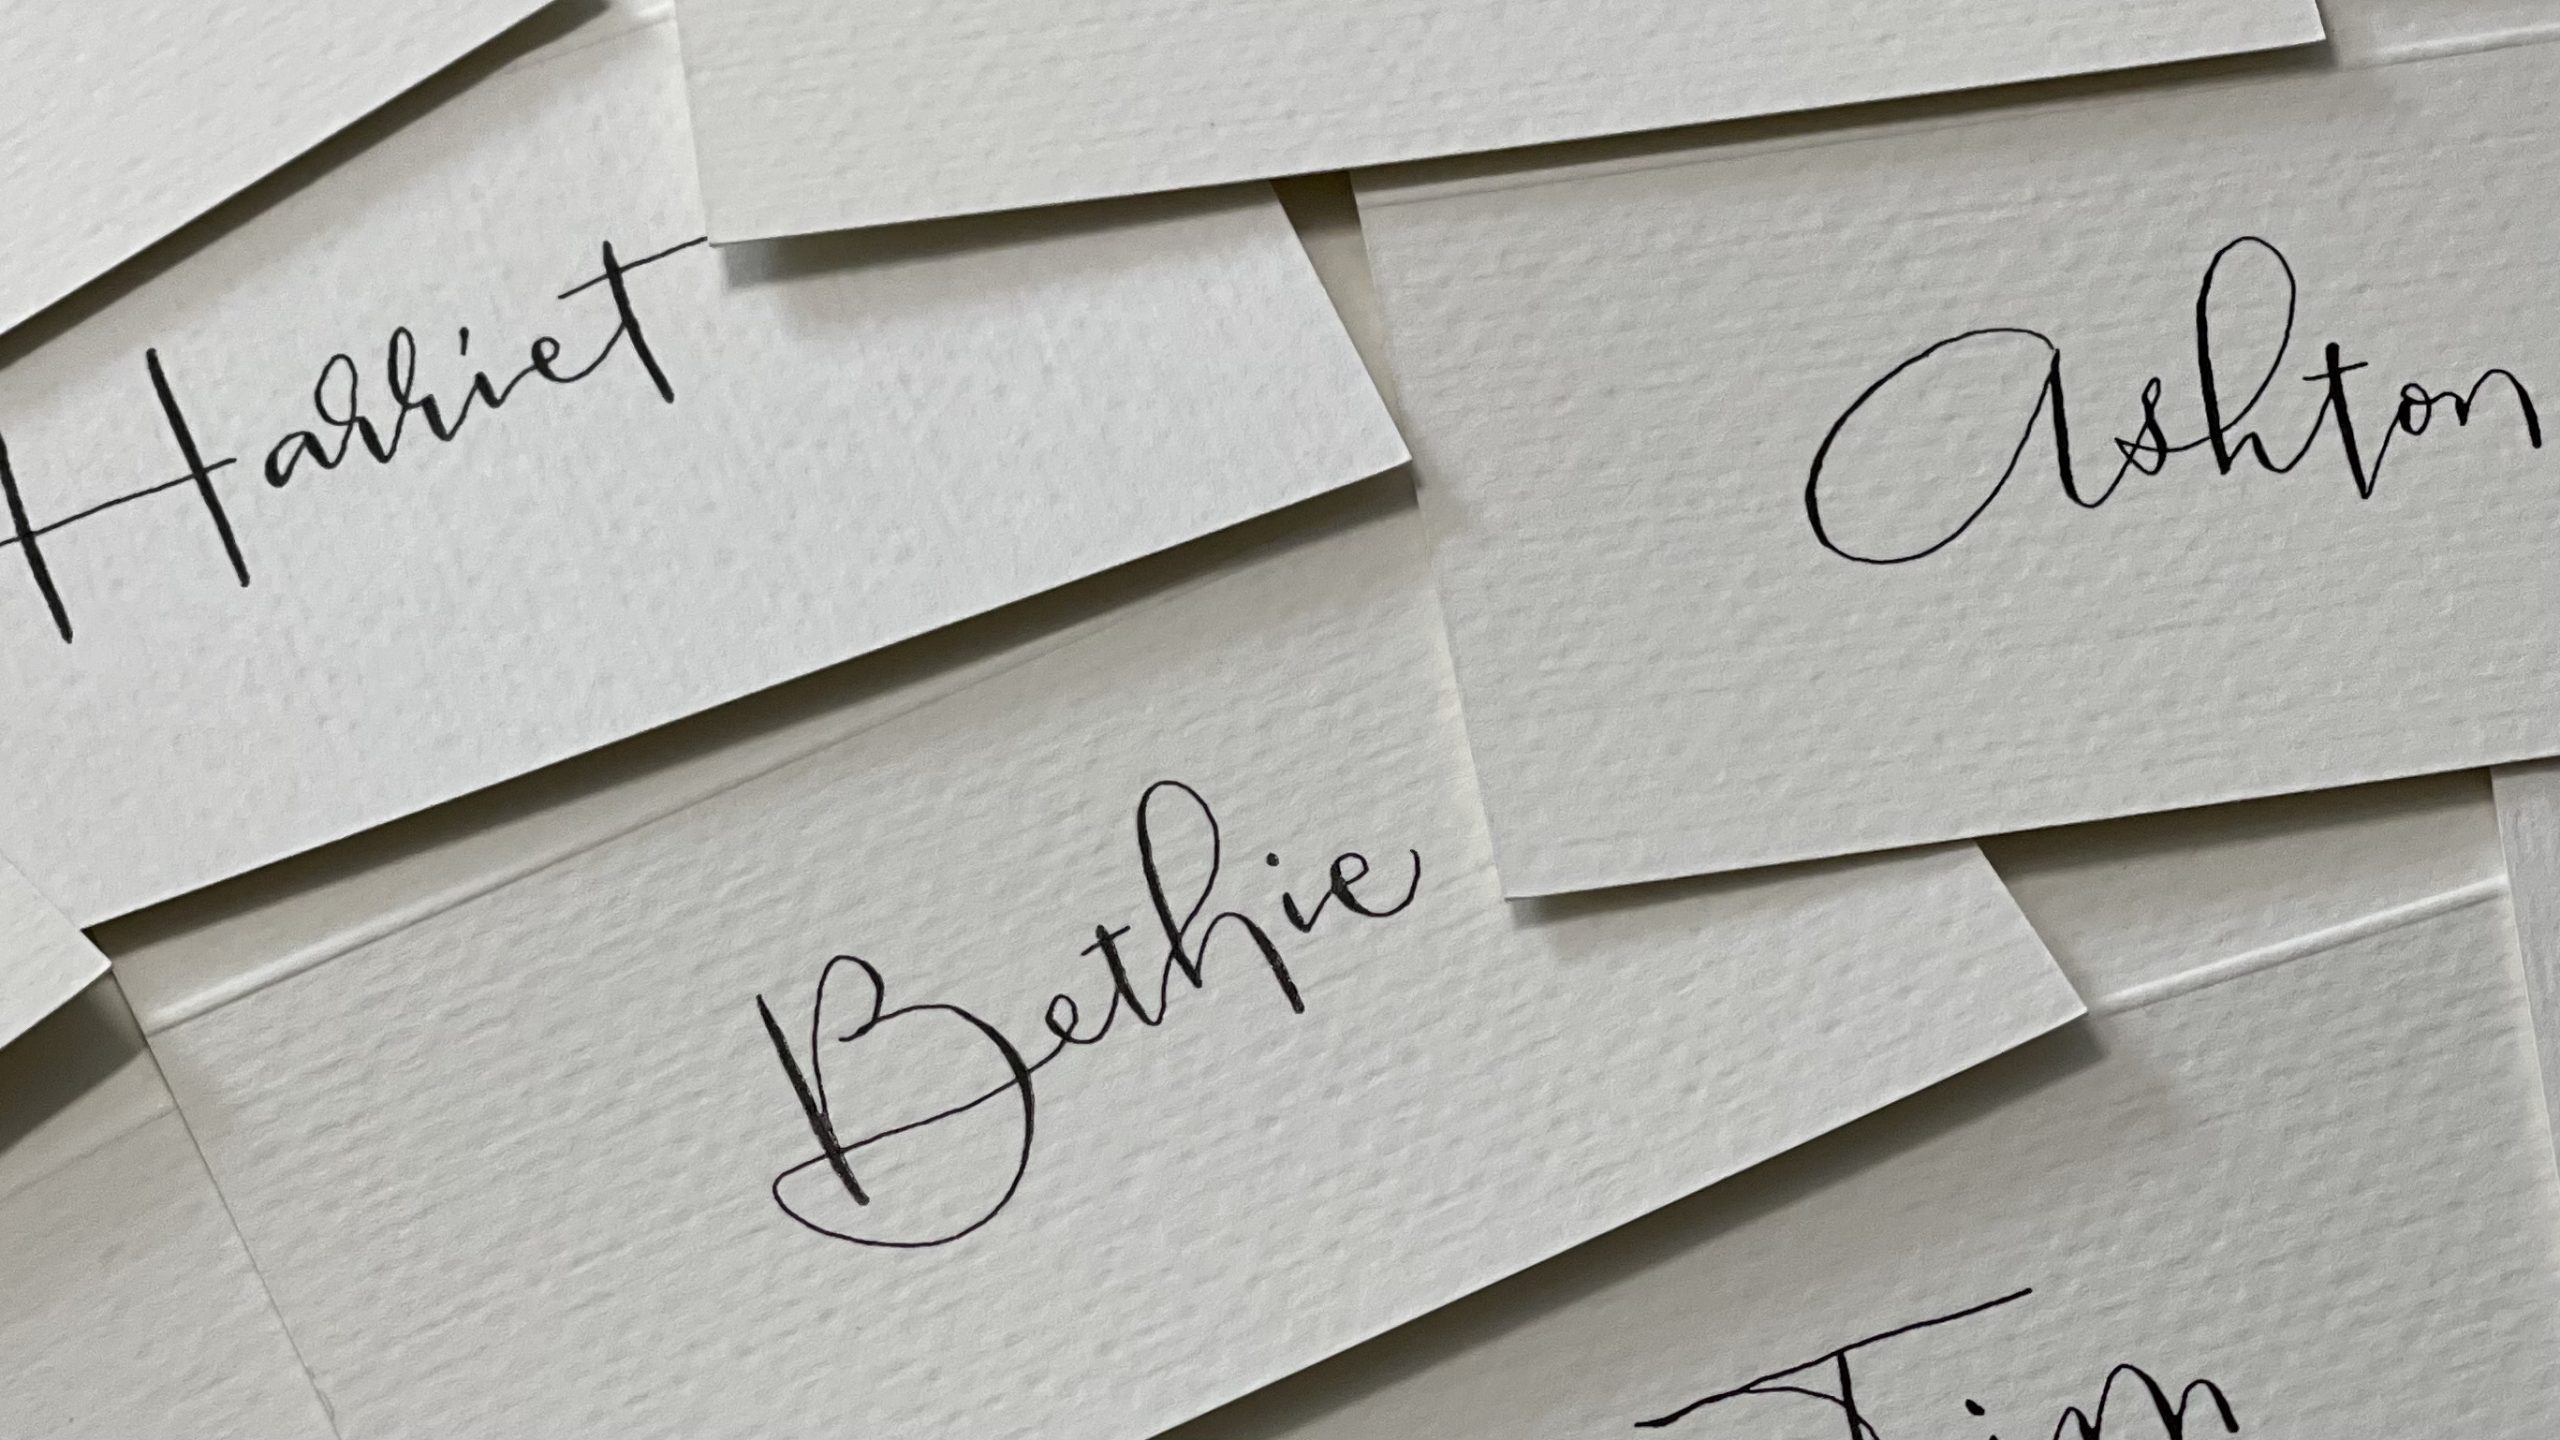 Harriet
Ashton
Bethie